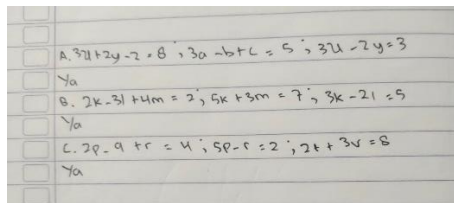 A. 3x+2y-2=8 ; 3a-b+c=5 ; 3x-2y=3
Ya
B. 2k-3l+4m=2 ; 5k+3m=7 ; 3k-2l=5
Ya
C. 2p-q+r=4 ; 5p-r=2 ; 2t+3v=8
Ya